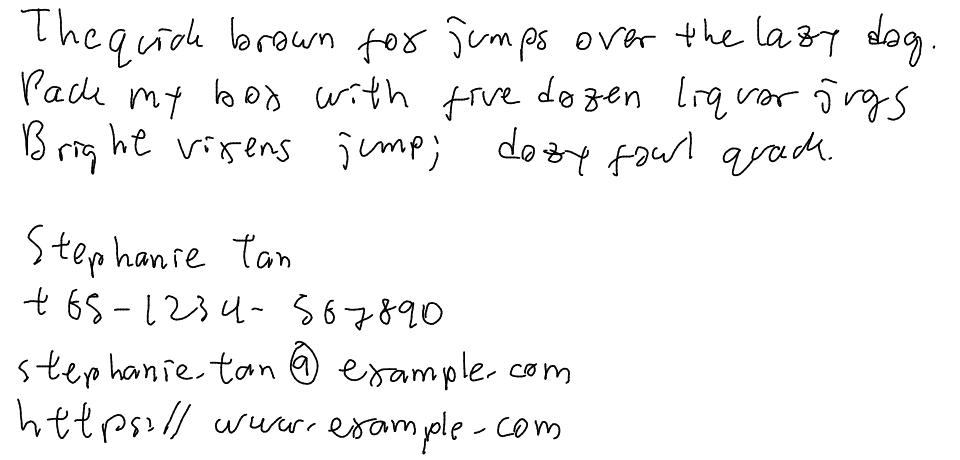 The quick brown fox jumps over the lazy dog.
Pack my box with five dozen liquor jugs
Bright vixens jump; dozy fowl quack.
Stephanie Tan
+65-1234-567890
stephanie.tan@example.com
https://www.example.com